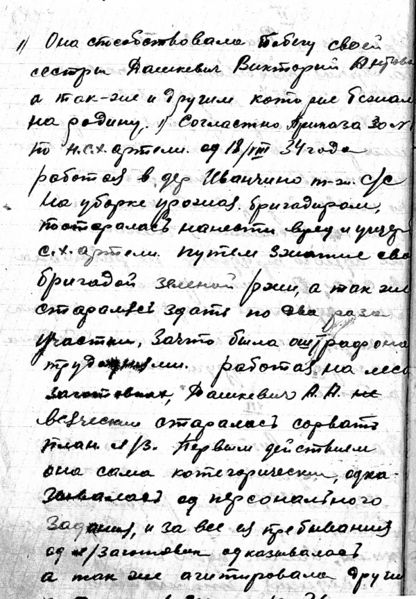 1) Она способствовала побегу своей
сестры Дашкевич Викторий Антов
а так-же и другим которые бежали
на родину. 1) Согласно Приказа
по н.с.х артели. од 18/VIII 34 года
работая в дер Иванчино с/с
на уборке урожая, бригадиром,
постаралась нанести вред и ущерб
с.х. артели. путем зжатие сво
бригадой зеленой ржи, а так же
старалась здать по два раза
участки, за что была оштрафована
трудоднями. работая на лесо
заготовках, Дашкевич А.А. не
старалась сорвать
план л/з. Первым действием
она сама категорически, одка-
зывалась од персонального
задания, и за все ея пребывания
од л/заготовки одказывалась
а так же агитировала други